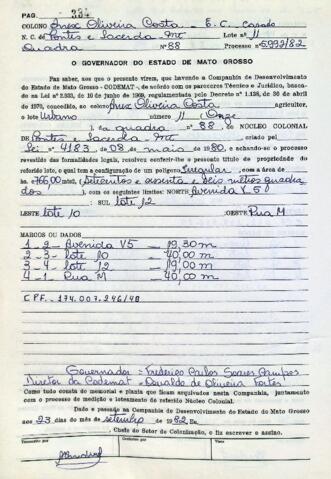 PAG. 334
COLONO Inex Oliveira Costa - E. C. casado
N. C. de Pontes e Lacerda - Mt Lote n.º 11
Quadra Nº 88 Processo nº 5.992/82
O GOVERNADOR DO ESTADO DE MATO GROSSO
Faz saber, aos que o presente virem, que havendo a Companhia de Desenvolvimento
do Estado de Mato Grosso - CODEMAT -, de acordo com os pareceres Técnico e Jurídico, baseca-
da na Lei nº 2.933, de 10 de junho de 1969, regulamentada pelo Decreto nº 1.138, de 30 de abril
de 1970, concedido, ao colono Inex Oliveira Costa agricultor,
o lote Urbano número 11 (Onze
), da quadra nº 88, do NÚCLEO COLONIAL
DE Pontes e Lacerda - Mt criado pela
Lei nº 4183 de 08 de maio de 1980, e achando-se o processo
revestido das formalidades legais, resolveu conferir-lhe o presente título de propriedade do
referido lote, o qual tem a configuração de um polígono Irregular, com a área de
ha. 766,00 mts2, (Setecentos e sessenta e seis metros quadra
dos), com os seguintes limites: NORTE Avenida V 5
: SUL lote 12
LESTE lote 10 :OESTE Rua M
MARCOS OU DADOS
1 - 2 - Avenida V5 - 19,30 m
2 - 3 - lote 10 - 40,00 m
3 - 4 - lote 12 - 19,00 m
4 - 1 - Rua M - 40,00 m
C.P.F. - 174.007.246/48
Governador - Frederico Carlos Soares Campos
Diretor da Codemat - Osvaldo de Oliveira Fortes
Como tudo consta do memorial e planta que ficam arquivados nesta Companhia, juntamente
com o processo de medição e loteamento do referido Núcleo Colonial.
Dado e passado na Companhia de Desenvolvimento do Estado do Mato Grosso
aos 23 dias do mês de setembro de 1982. Eu,
, Chefe do Setor de Colonização, o fiz escrever e assino.
Transcrito por Conferido por Visto